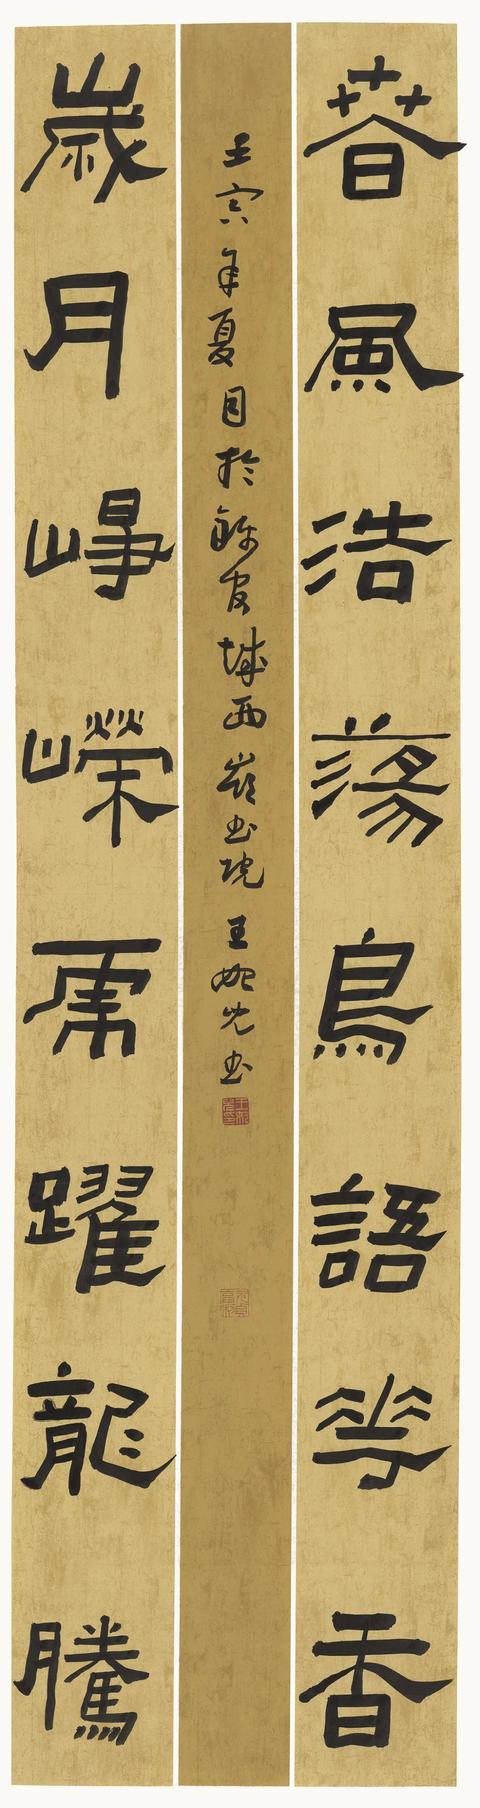 春風浩蕩鳥語華香
歲月崢嶸虎躍龍騰
壬寅年夏日於錦官城西嶺書院王光書